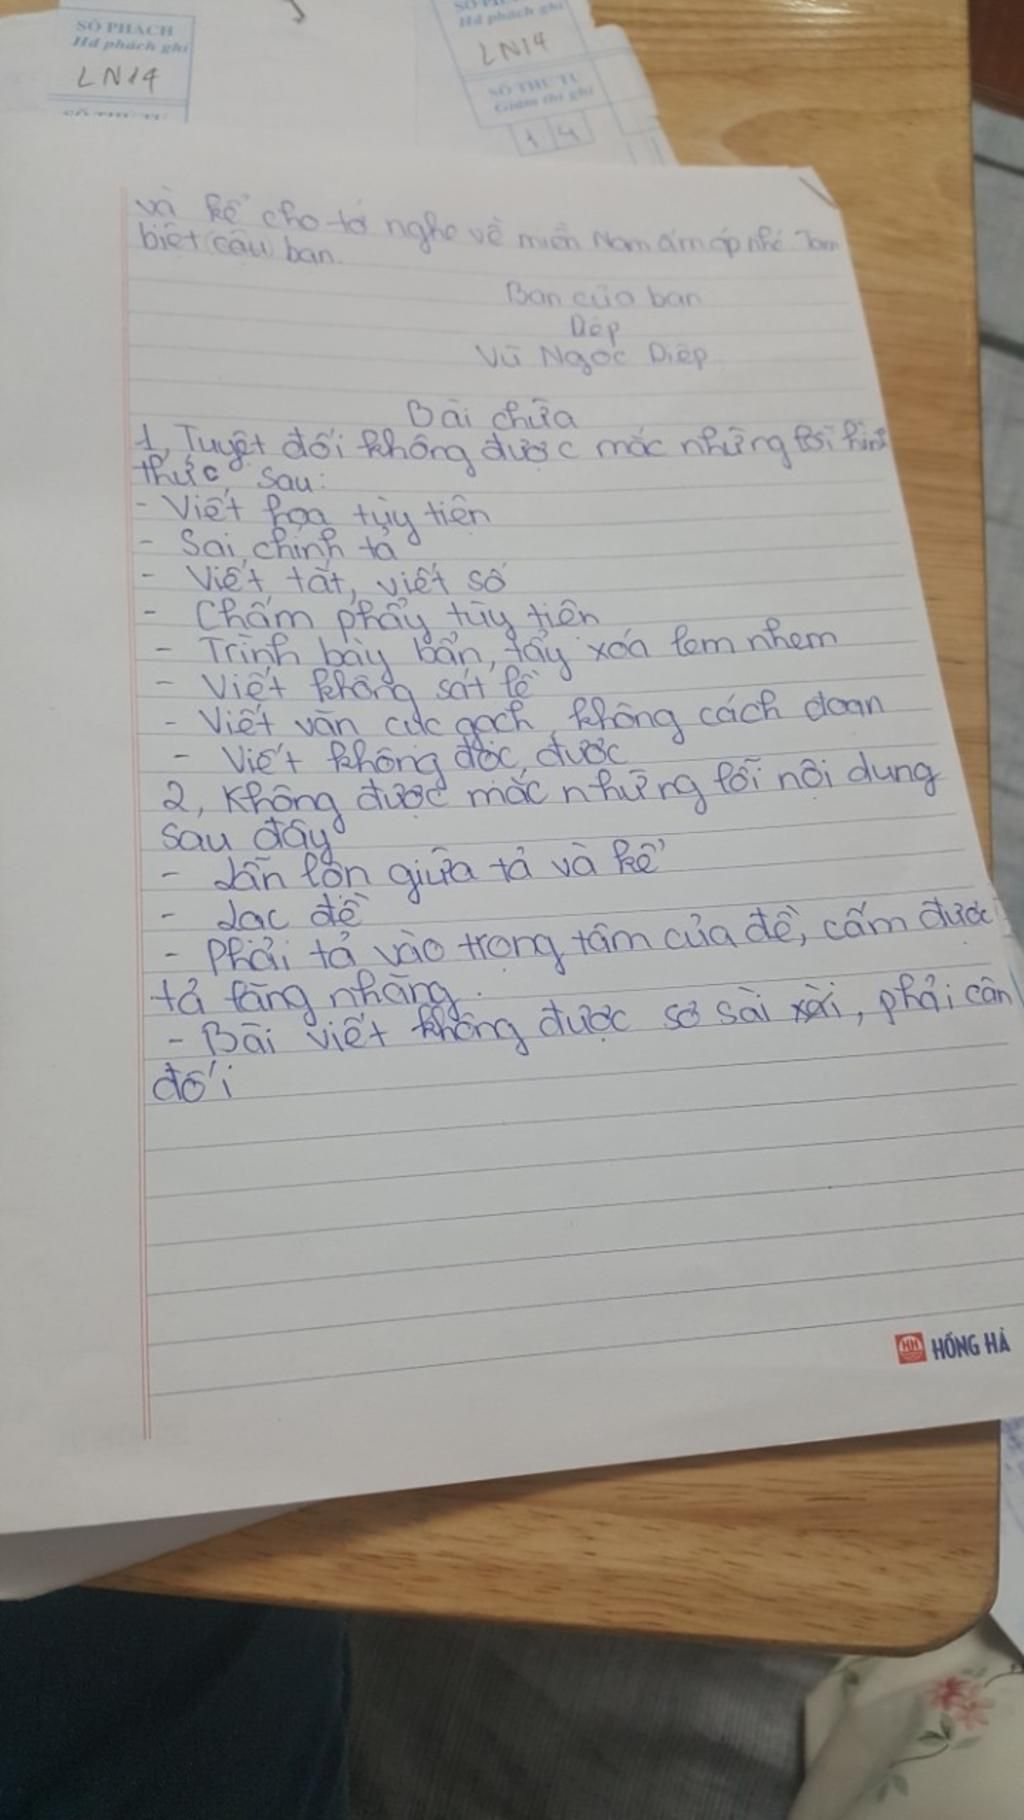 SỐ PHÁCH
Hđ phách ghi
LN14
Hđ phách ghi
LN14
SỐ THỨ TỰ
Giám thị ghi
1 4
và kể cho tớ nghe về miền Nam ấm áp nhé. Tạm
biệt cậu bạn.
Bạn của bạn
Diệp
Vũ Ngọc Diệp
Bài chữa
1, Tuyệt đối không được mắc những lỗi hình
thức sau:
- Viết hoa tùy tiện
- Sai chính tả
- Viết tắt, viết số
- Chấm phẩy tùy tiện
- Trình bày bẩn, tẩy xóa lem nhem
- Viết không sát lề
- Viết văn cục gạch, không cách đoạn
- Viết không đọc được
2, Không được mắc những lỗi nội dung
sau đây
- Lẫn lộn giữa tả và kể
- Lạc đề
- Phải tả vào trọng tâm của đề, cấm được
tả lằng nhằng.
- Bài viết không được sơ sài, phải cân
đối
HỒNG HÀ